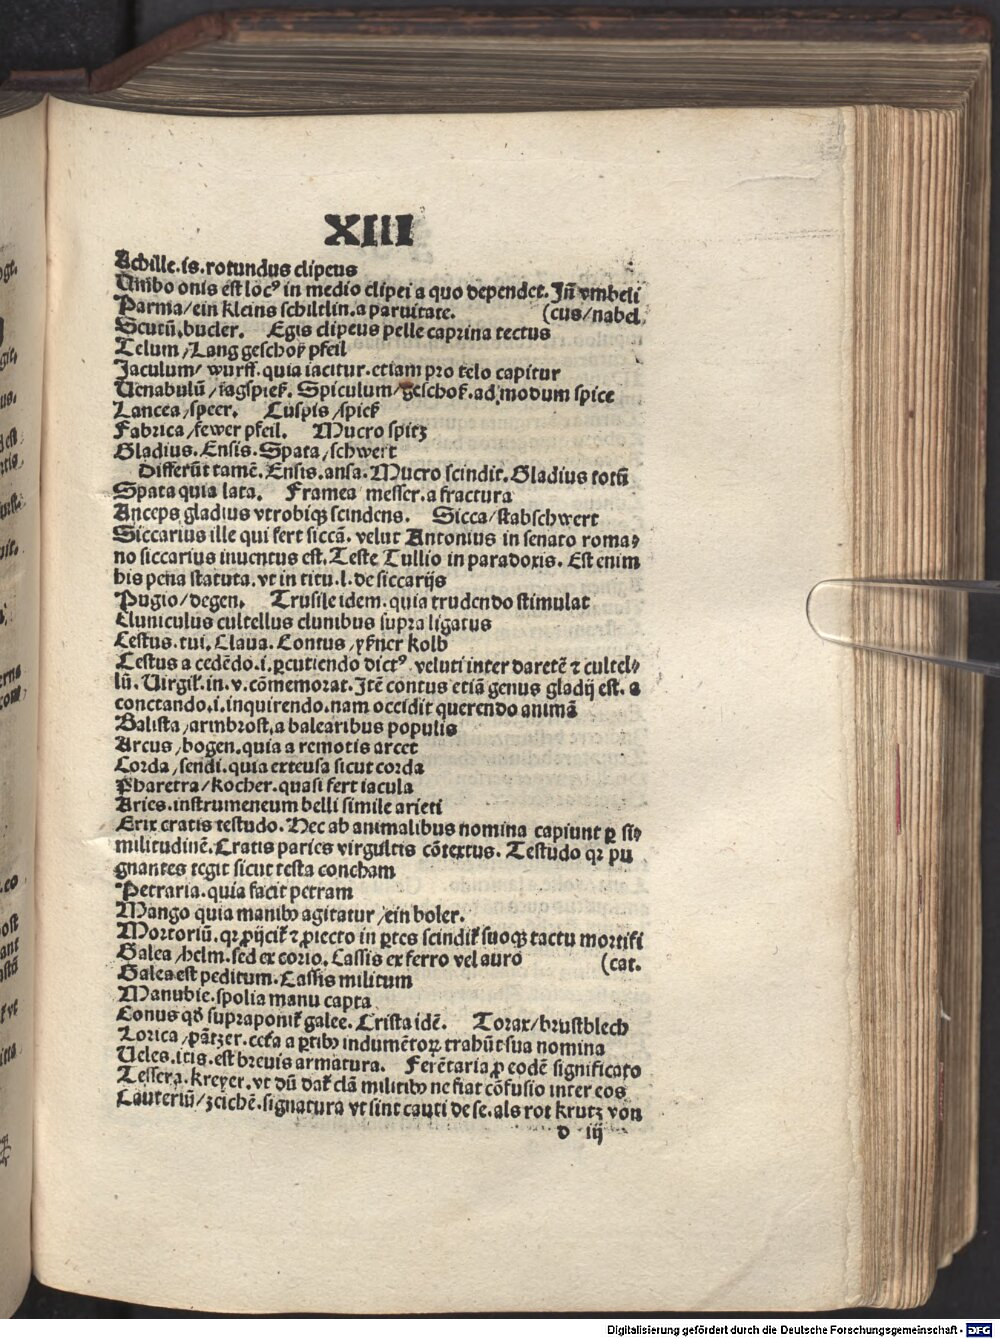 XIII
Achille.is.rotundus clipeus
Umbo onis est locꝰ in medio clipei a quo dependet. Jn̄ vmbeli
Parma/ein kleins schiltlin.a paruitate. (cus/nabel.
Scutū.bucler. Egis clipeus pelle caprina tectus
Telum/Lang geschoß pfeil
Jaculum/ wurff.quia iacitur.etiam pro telo capitur
Uenabulū/ Spiculum/geschoß.ad modum spice
Lancea/speer. Cuspis/spieß
Fabrica/fewer pfeil. Mucro spitz
Gladius.Ensis.Spata/schwert
Differūt tamē.Ensis.ansa.Mucro scindit.Gladius totū
Spata quia lata. Framea messer.a fractura
Anceps gladius vtrobiqꝫ scindens. Sicca/stabschwert
Siccarius ille qui fert siccā.velut Antonius in senato roma⸗
no siccarius inuentus est.Teste Tullio in paradoxis. Est enim
his pena statuta.vt in titu.l.de siccarijs
Pugio/degen. Trusile idem.quia trudendo stimulat
Cluniculus cultellus clunibus supra ligatus
Cestus.tui.Claua.Contus kolb
Cestus a cedēdo.i.ꝑcutiendo dictꝰ veluti inter daretē ⁊ cultel⸗
lū.Uirgiƚ.in.v.cōmemorat.Jtē contus etiā genus gladij est. a
conctando.i.inquirendo.nam occidit querendo animā
Balista/armbrost.a balearibus populis
Arcus/bogen.quia a remotis arcet
Corda/sendi.quia extensa sicut corda
Pharetra/kocher.quasi fert iacula
Aries.instrumeneum belli simile arieti
Erix cratis testudo.Hec ab animalibus nomina capiunt ꝑ si⸗
militudinē.Cratis paries virgultis cōtextus. Testudo qꝛ pu
gnantes tegit sicut testa concham
Petraria.quia facit petram
Mango quia manibꝫ agitatur/ein boler.
Mortoriū.qꝛ ꝓijciƚ ⁊ ꝓiecto in ꝑtes scindiƚ suoqꝫ tactu mortifi
Galea/helm.sed ex corio.Cassis ex ferro vel auro (cat.
Galea est peditum.Cassis militum
Manubie.spolia manu capta
Conus qđ supraponiƚ galee.Crista idē. Torax/brustblech
Lorica/pātzer. a ꝑtibꝫ indumētoꝝ trahūt sua nomina
Ueles.itis.est breuis armatura. Ferētaria ꝓ eodē significato
Tessera.kreyer.vt dū daƚ clā militibꝫ ne fiat cōfusio inter eos
Cauteriū/zeichē.signatura vt sint cauti de se.als rot krutz von
d iij
Digitalisierung gefördert durch die Deutsche Forschungsgemeinschaft - DFG